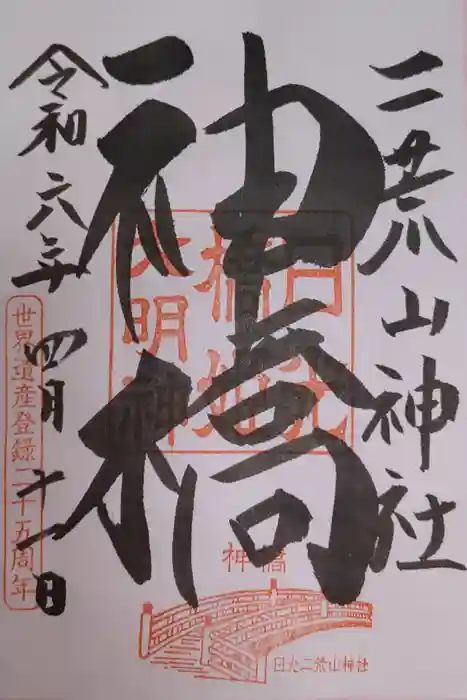 二荒山神社
神橋
日光
橋姫
大明神
令和六年 四月十一日
世界遺産登録二十五周年
神橋
日光二荒山神社